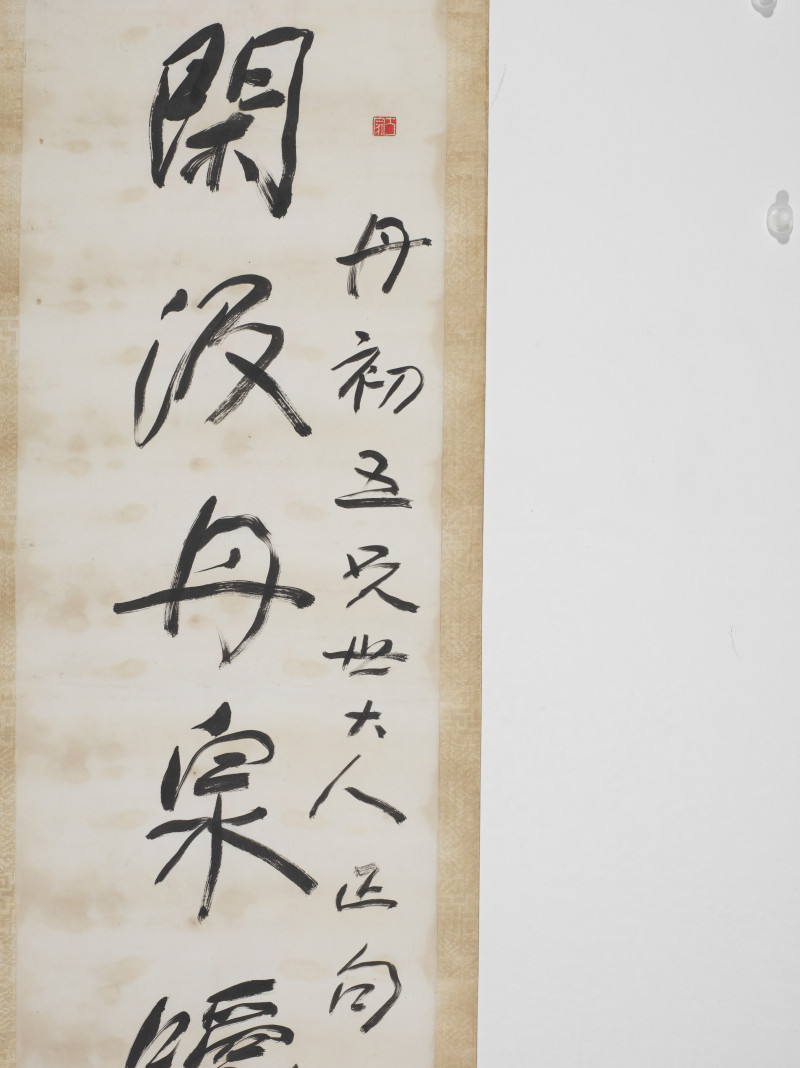 丹初五兄世大人正句
閑汲丹泉